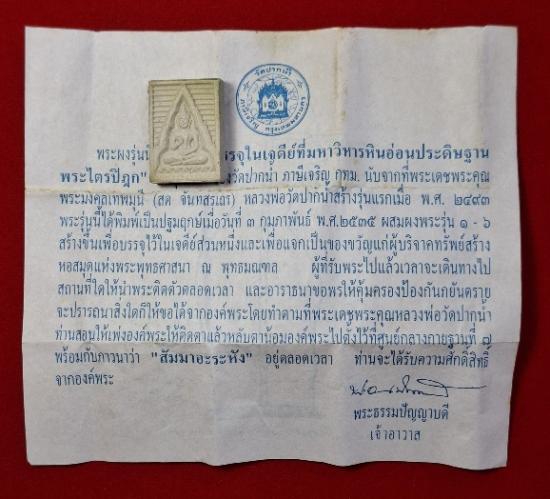 วัดปากน้ำ
ภาษีเจริญ กรุงเทพมหานคร
พระผงรุ่นนี้ รจุในเจดีย์ที่มหาวิหารหินอ่อนประดิษฐาน
พระไตรปิฎก" งวัดปากน้ำ ภาษีเจริญ กทม. นับจากที่พระเดชพระคุณ
พระมงคลเทพมุนี (สด จันทสรเถร) หลวงพ่อวัดปากน้ำสร้างรุ่นแรกเมื่อ พ.ศ. ๒๔๙๓
พระรุ่นนี้ได้พิมพ์เป็นปฐมฤกษ์เมื่อวันที่ ๓ กุมภาพันธ์ พ.ศ.๒๕๓๕ ผสมผงพระรุ่น ๑ - ๖
สร้างขึ้นเพื่อบรรจุไว้ในเจดีย์ส่วนหนึ่งและเพื่อแจกเป็นของขวัญแก่ผู้บริจาคทรัพย์สร้าง
หอสมุดแห่งพระพุทธศาสนา ณ พุทธมณฑล ผู้ที่รับพระไปแล้วเวลาจะเดินทางไป
สถานที่ใดให้นำพระติดตัวตลอดเวลา และอาราธนาขอพรให้คุ้มครองป้องกันภยันตราย
จะปรารถนาสิ่งใดก็ให้ขอได้จากองค์พระโดยทำตามที่พระเดชพระคุณหลวงพ่อวัดปากน้ำ
ท่านสอนให้เพ่งองค์พระให้ติดตาแล้วหลับตาน้อมองค์พระไปตั้งไว้ที่ศูนย์กลางกายฐานที่ ๗
พร้อมกับภาวนาว่า "สัมมาอะระหัง" อยู่ตลอดเวลา ท่านจะได้รับความศักดิ์สิทธิ์
จากองค์พระ
พระธรรมปัญญาบดี
เจ้าอาวาส